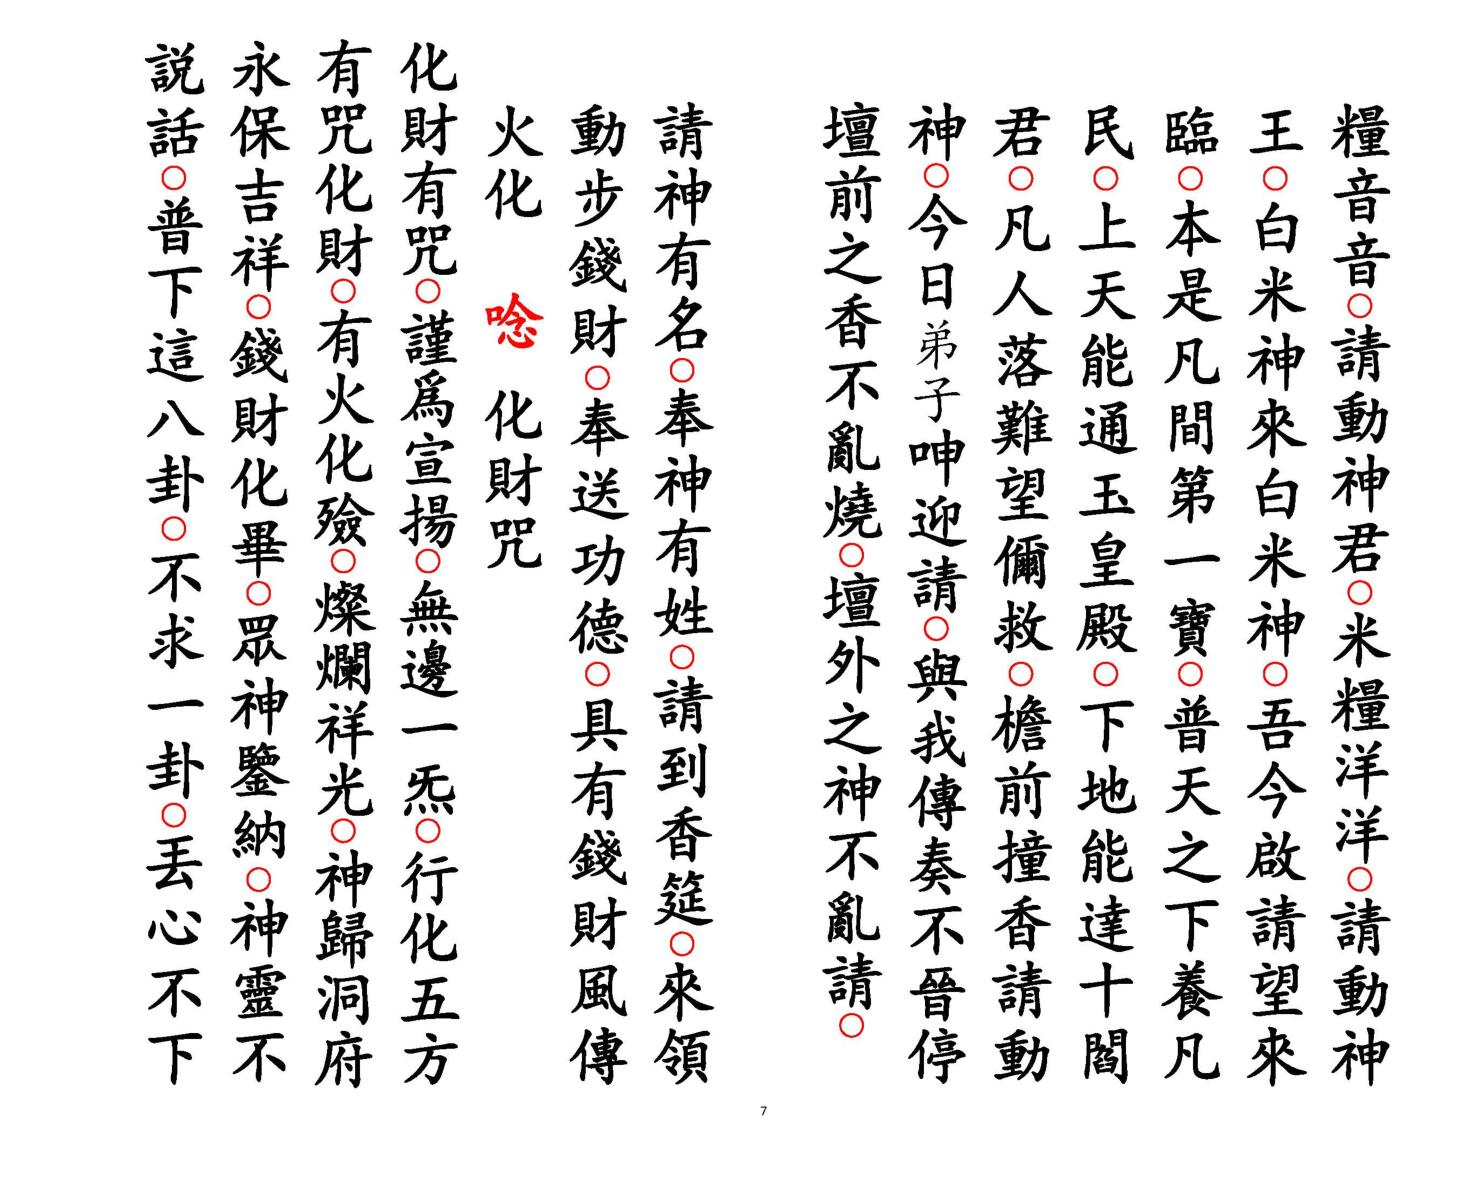 糧音音○請動神君○米糧洋洋○請動神
王○白米神來白米神○吾今啟請望來
臨○本是凡間第一寶○普天之下養凡
民○上天能通玉皇殿○下地能達十閻
君○凡人落難望儞救○檐前撞香請動
神○今日弟子呻迎請○與我傳奏不晉停
壇前之香不亂燒○壇外之神不亂請○
請神有名○奉神有姓○請到香筵○來領
動步錢財○奉送功德○具有錢財風傳
火化 唸 化財咒
化財有咒○謹為宣揚○無邊一炁○行化五方
有咒化財○有火化殮○燦爛祥光○神歸洞府
永保吉祥○錢財化畢○眾神鑒納○神靈不
説話○普下這八卦○不求一卦○丟心不下
7